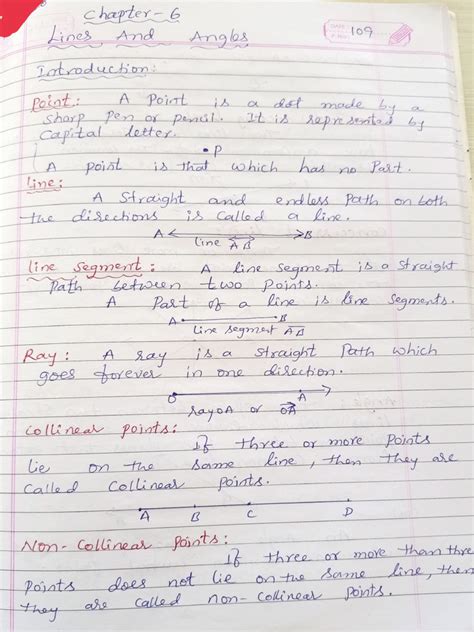 Chapter-6
109
Lines And Angles
Introduction:
Point: A Point is a dot made by a
sharp pen or pencil. It is represented by
capital letter.
•P
A point is that which has no Part.
Line:
A straight and endless Path on both
the directions is called a line.
A B
line AB
Line segment: A line segment is a straight
Path between two Points.
A Part of a line is line segments.
A B
Line segment AB
Ray: A ray is a straight Path which
goes forever in one direction.
O A
rayOA or OA
Collinear points:
If three or more Points
lie on the same line, then they are
called Collinear points.
A B C D
Non-Collinear Points:
If three or more than three
Points does not lie on the same line, then
they are called non-collinear Points.